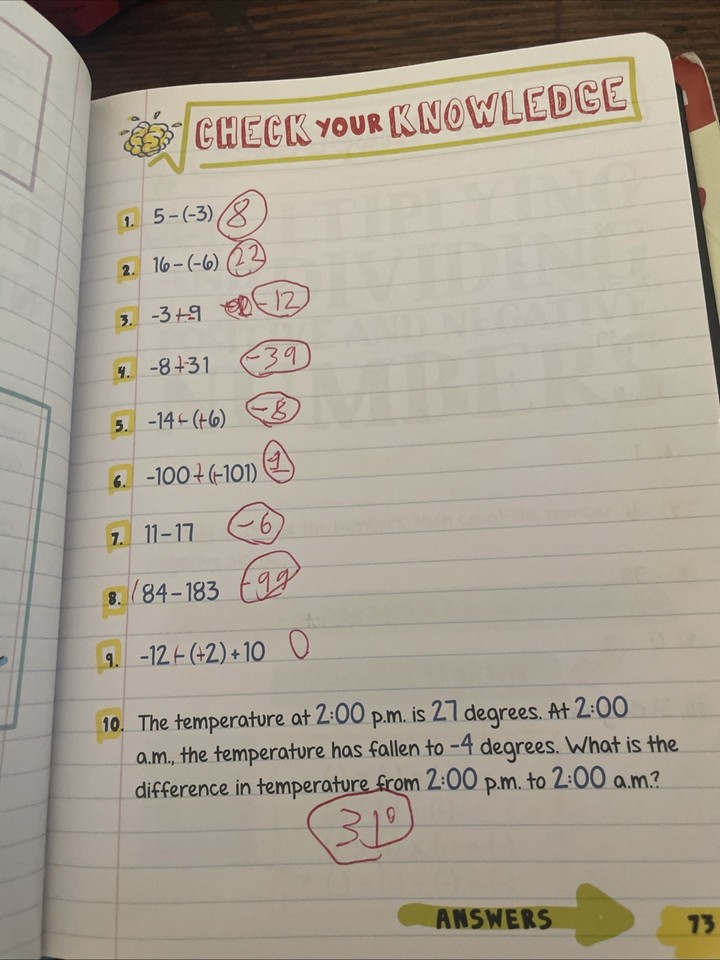 CHECK YOUR KNOWLEDGE
1. 5-(-3) 8
2. 16-(-6) 22
3. -3+-9 -12
4. -8+-31 -39
5. -14+(+6) -8
6. -100+(+101) 1
7. 11-17 -6
8. 84-183 -99
9. -12+(+2)+10 0
10. The temperature at 2:00 p.m. is 27 degrees. At 2:00
a.m., the temperature has fallen to -4 degrees. What is the
difference in temperature from 2:00 p.m. to 2:00 a.m.?
31°
ANSWERS 73